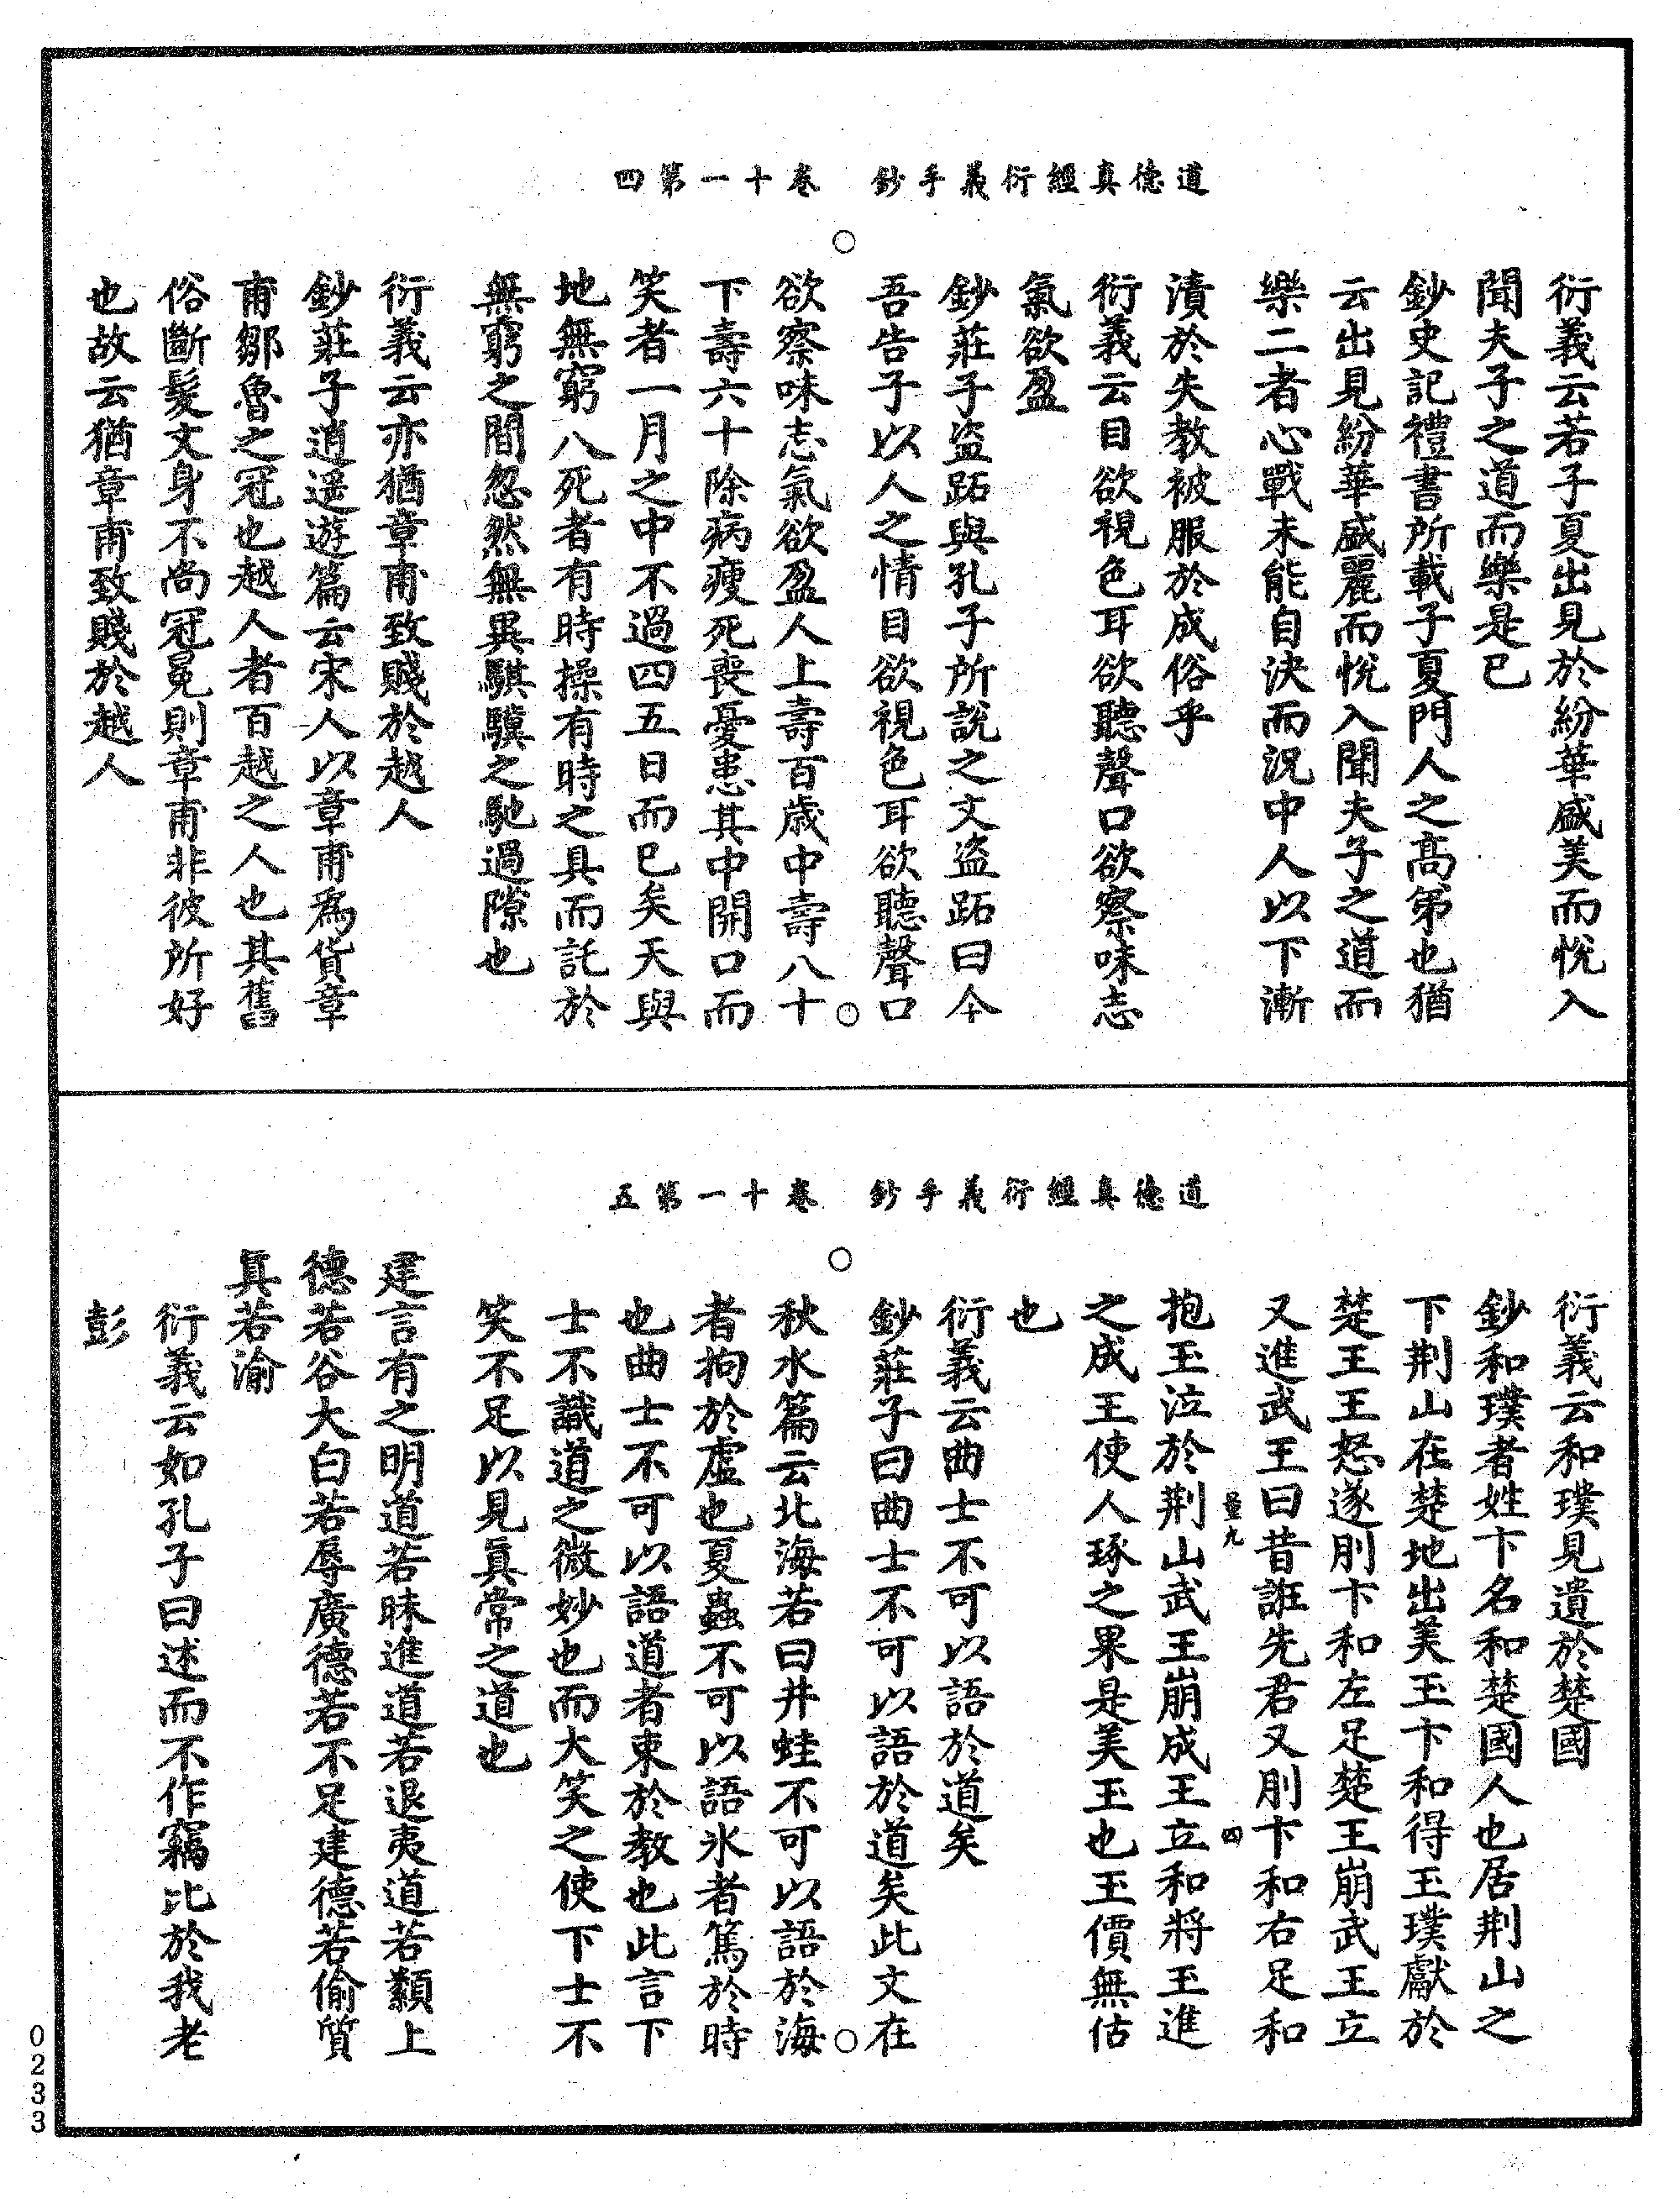 道德真經衍義手鈔　卷十一第四
衍義云若子夏出見於紛華盛美而悅入
聞夫子之道而樂是已
鈔史記禮書所載子夏門人之高弟也猶
云出見紛華盛麗而悅入聞夫子之道而
樂二者心戰未能自決而況中人以下漸
漬於失教被服於成俗乎
衍義云目欲視色耳欲聽聲口欲察味志
氣欲盈
鈔莊子盜跖與孔子所說之文盜跖曰今
吾告子以人之情目欲視色耳欲聽聲口
欲察味志氣欲盈人上壽百歲中壽八十
下壽六十除病瘦死喪憂患其中開口而
笑者一月之中不過四五日而已矣天與
地無窮八死者有時操有時之具而託於
無窮之間忽然無異騏驥之馳過隙也
衍義云亦猶章甫致賤於越人
鈔莊子逍遥遊篇云宋人以章甫為貨章
甫鄒魯之冠也越人者百越之人也其舊
俗斷髮文身不尚冠冕則章甫非彼所好
也故云猶章甫致賤於越人
道德真經衍義手鈔　卷十一第五
衍義云和璞見遺於楚國
鈔和璞者姓卞名和楚國人也居荆山之
下荆山在楚地出美玉卞和得玉璞獻於
楚王王怒遂刖卞和左足楚王崩武王立
又進武王曰昔誑先君又刖卞和右足和
量九　四
抱玉泣於荆山武王崩成王立和將玉進
之成王使人琢之果是美玉也玉價無估
也
衍義云曲士不可以語於道矣
鈔莊子曰曲士不可以語於道矣此文在
秋水篇云北海若曰井蛙不可以語於海
者拘於虛也夏蟲不可以語氷者篤於時
也曲士不可以語道者束於教也此言下
士不識道之微妙也而大笑之使下士不
笑不足以見真常之道也
建言有之明道若昧進道若退夷道若纇上
德若谷大白若辱廣德若不足建德若偷質
真若渝
衍義云如孔子曰述而不作竊比於我老
彭
0233